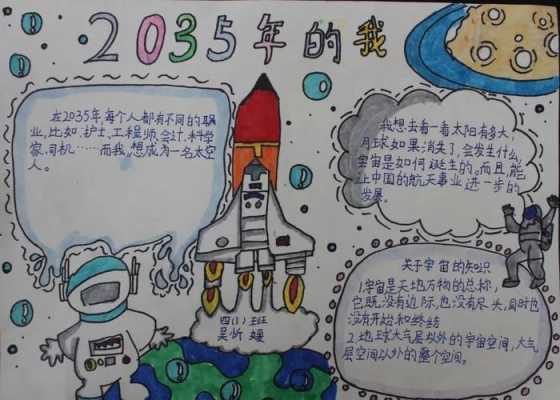 2035年的我
在2035年,每个人都有不同的职
业,比如:护士,工程师,会计,科学
家,司机……而我,想成为一名太空
人。
我想去看一看太阳有多大,
月球如果消失了,会发生什么,
宇宙是如何诞生的。而且,能
让中国的航天事业进一步的
发展。
关于宇宙的知识
1.宇宙是天地万物的总称,
它既没有边际,也没有尽头,同时也
没有开始和终结
2.地球大气层以外的宇宙空间,大气
层空间以外的整个空间。
四(1)班
吴昕媛